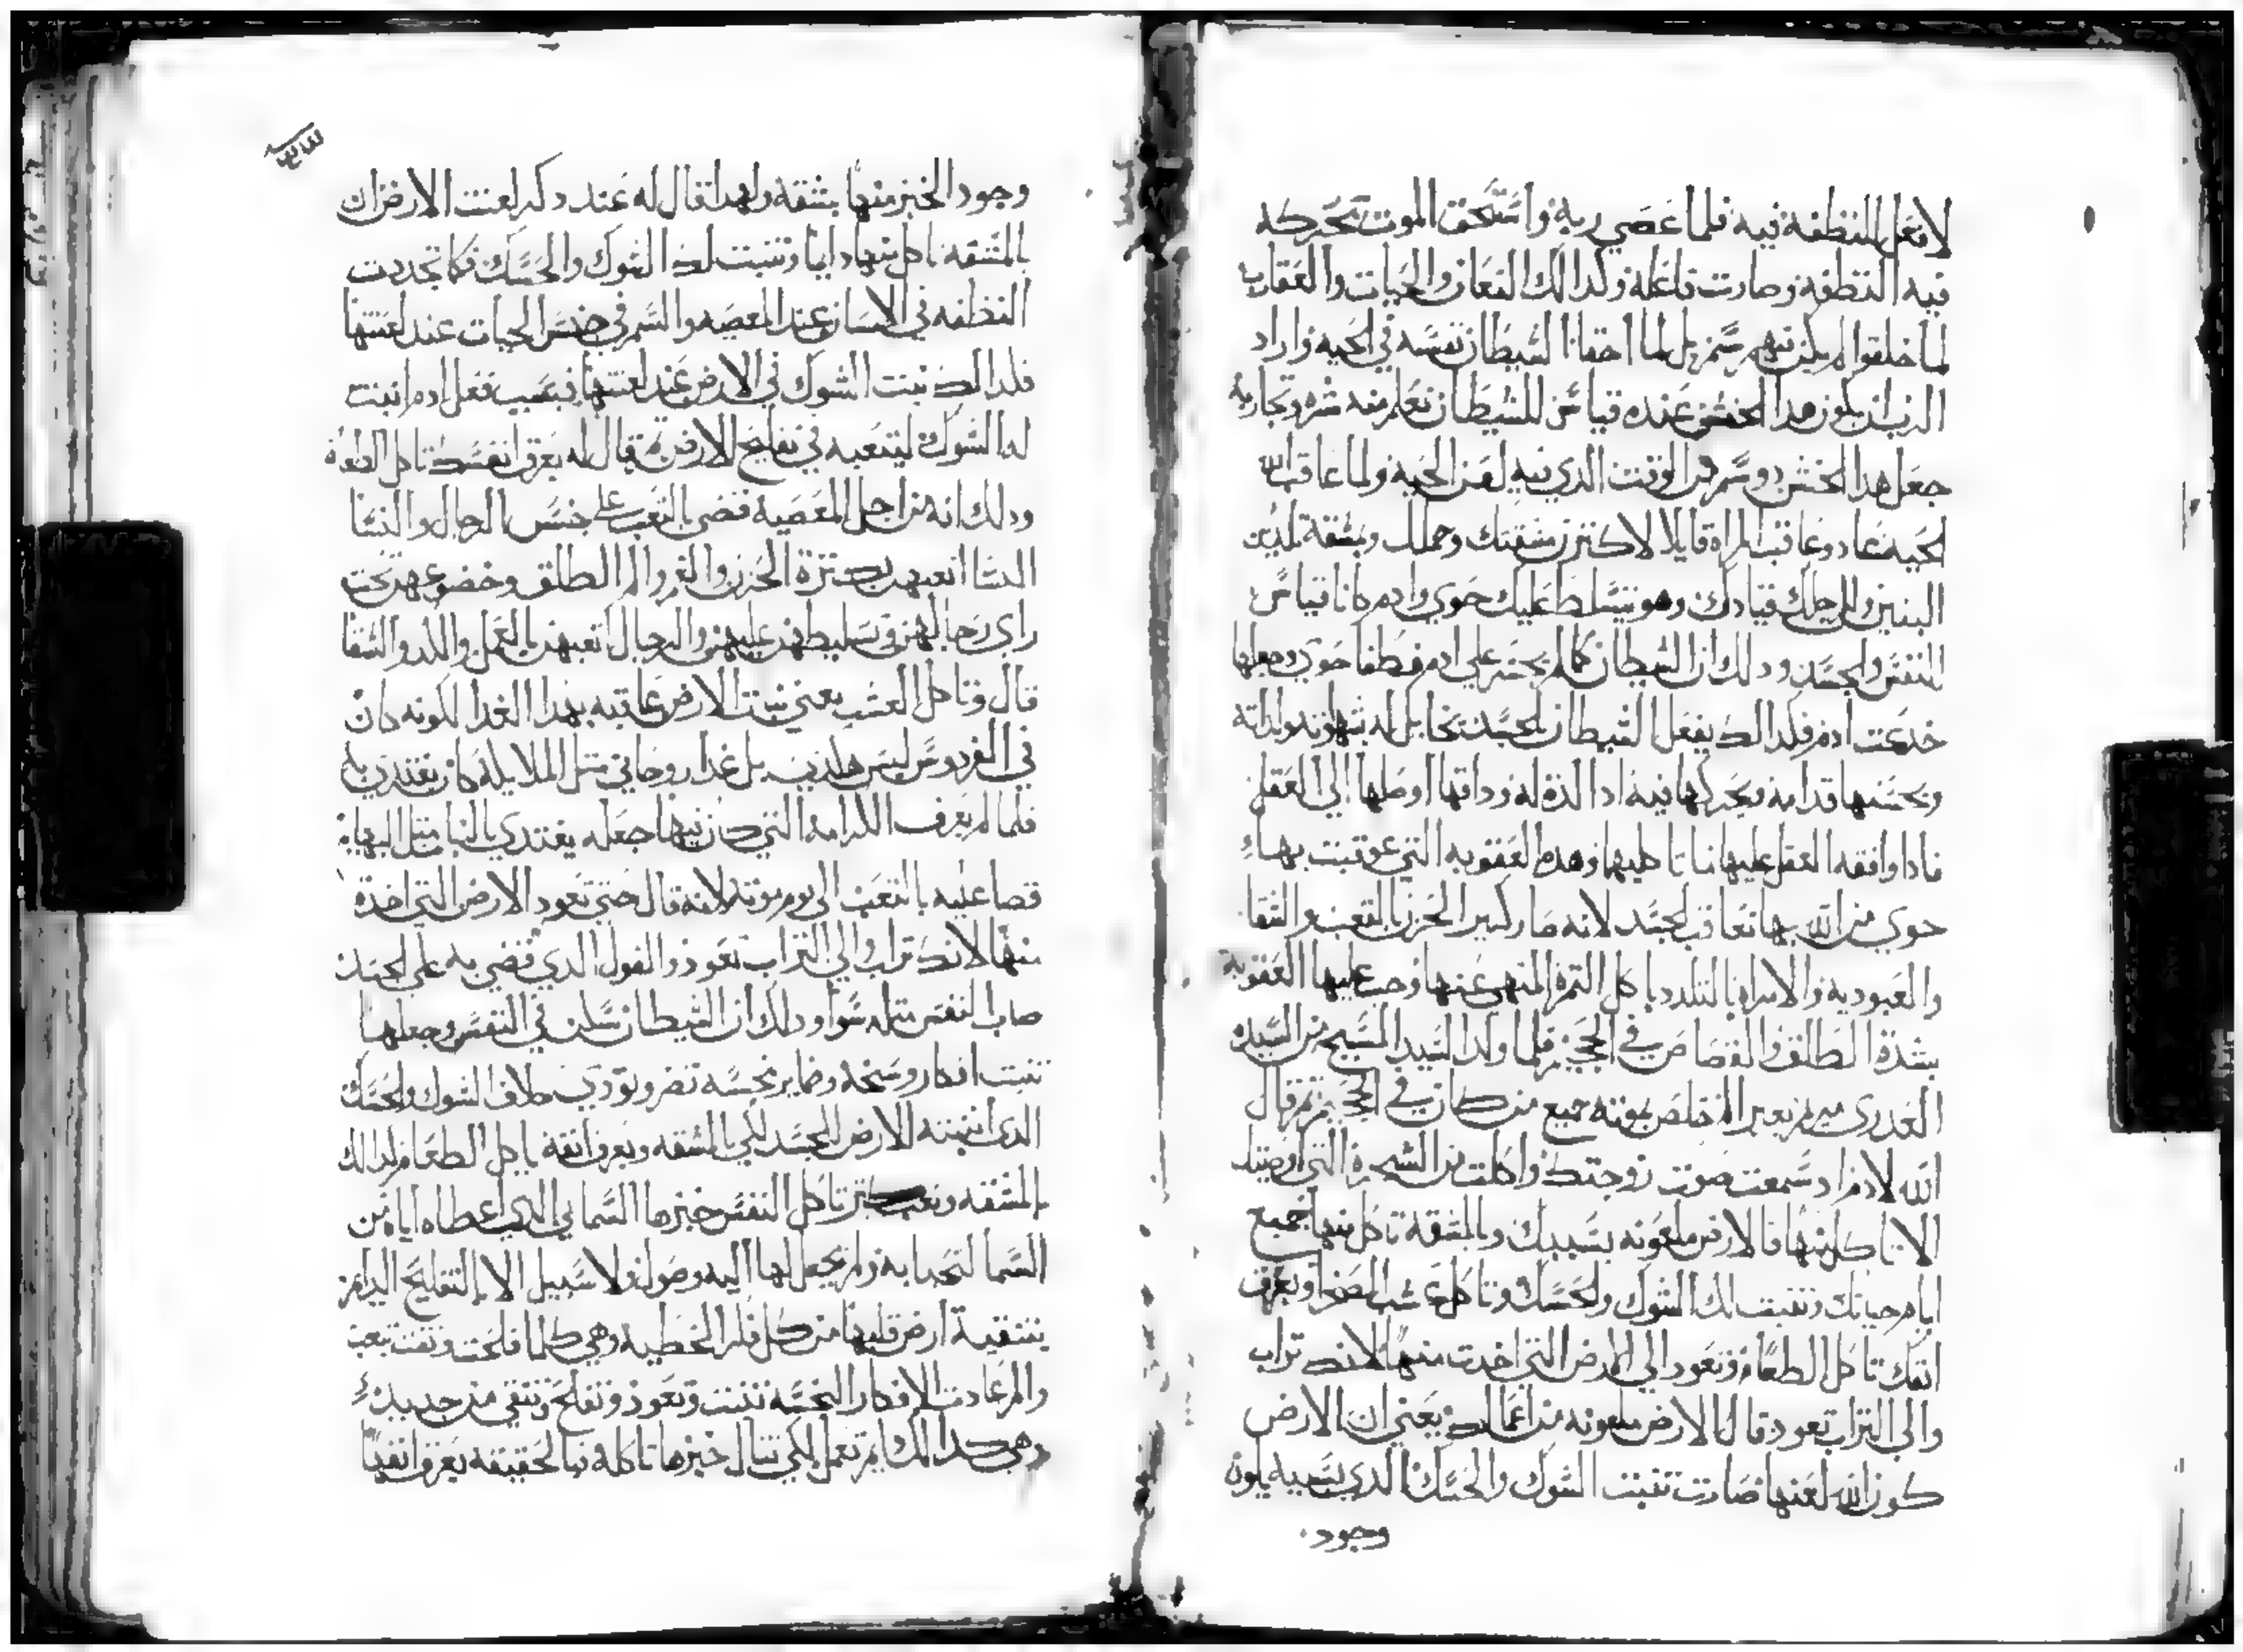 لافعل للنطفه فيه فلما عصي ربه واستحق الموت تحركه
فيه النطفه وصارت فاعله وكدالك التعابن والحيات والعقارب
لما خلقوا لم يكن فيهم سم بل لما اخفا الشيطان نفسه في الحيه واراد
الرب ان يكون هدا الخنش عنده قياس للشيطان نعلم منه شره وتجاربه
جعل هدا الخنش دو سم من الوقت الدي فيه لعن الحيه ولما عاقب الله
الحيه عاد وعاقب المراه قايلا لاكترن مشقتك وحملك وبمشقه تلدين
البنين والي رجلك قيادك وهو يتسلط عليك حوي وادم كانا قياس
للنفس والجسد ودلك ان الشيطان كالم يجسر علي ادم فطغا حوي وجعلها
خدعت ادم فكدالك يفعل الشيطان بالجسد يتخايل له بشهوته ولداته
ويحسنها قدامه ويحركها فيه ادا الده له وداقها اوصلها الي العقل
فادا وافقه العقل عليها فاتا كليهما وهده العقوبه التي عوقبت بها
حوي من الله بها تعاقب الجسد لانه صار كبير الحزن بالتعب والشقا
والعبوديه والامراه بالتلدد باكل التمره المنهي عنها وجب عليها العقوبه
بشدة الطلق والقصاص في الجحيم فلما ولد السيد المسيح من السيده
العدري مريم بغير الم خلص بموته جميع من كان في الجحيم تم قال
الله لادم اد سمعت صوت زوجتك واكلت من الشجرة التي اوصيتك
الا تاكل منها فالارض ملعونه بسببك وبالمشقه تاكل منها جميع
ايام حياتك وتنبت لك الشوك والحسك وتاكل عشب الصحرا وبعرق
انفك تاكل الطعام وتعود الي الارض التي اخدت منها لانك تراب
والي التراب تعود قال الارض ملعونه من اعمالك يعني ان الارض
كون الله لعنها صارت تنبت الشوك والحسك الدي بسببه يكون
وجود
وجود الخبز منها بمشقه ولهدا قال له عند دكر لعنت الارض ان
بالمشقه تاكل منها دايما وتنبت لك الشوك والحسك فكما تجددت
النطفه في الانسان عند المعصيه والسم في جنس الحيات عند لعنتها
فكدالك نبت الشوك في الارض عند لعنتها فبسبب فعل ادم انبت
له الشوك ليتعبه في تفليح الارض تم قال له بعرق انفسك تاكل الطعام
ودلك انه من اجل المعصيه قضي بالتعب علي جنس الرجال والنسا
النسا اتعبهن بكترة الحزن والغم والم الطلق وخضوعهن تحت
راي رجالهن وتسليطهن عليهن والرجال اتعبهن بالعمل والكد والشقا
قال وتاكل العشب يعني نبت الارض عاقبه بهدا الغدا لكونه كان
في الفردوس ليس هكدي بل غدا روحاني متل الملايكه كان يغتدي به
فلما لم يعرف الكرامه التي كان فيها جعله يغتدي بالنبا متل البهايم
قصا عليه بالتعب الي يوم موته لانه قال حتي تعود الارض التي اخدة
منها لانك تراب والي التراب تعود والقول الدي قضي به علي الجسد
صاب النفس متله سوا ودلك ان الشيطان سكن في النفس وجعلها
تنبت افكار وسخه وضماير نجسه تضر وتودي خلاف الشوك والحسك
الدي انبتته الارض للجسد لكي بالمشقه وبعرق انفه ياكل الطعام كدالك
بالمشقه وتعب كتير تاكل النفس خبزها السماي الدي اعطاه اياه من
السما لتحيا به ولم يجعل لها اليه وصول ولا سبيل الا بالتفليح الدايم
بتنقية ارض قلبها من كل فكر الخطيه وهي كلما فلحت ونقت بتعب
والم عادت الافكار النجسه تنبت وتعود وتفلح وتنقي من جديد
وهي كدالك لم تعمل لكي تنال خبزها تاكله وبالحقيقه بعرق انفها